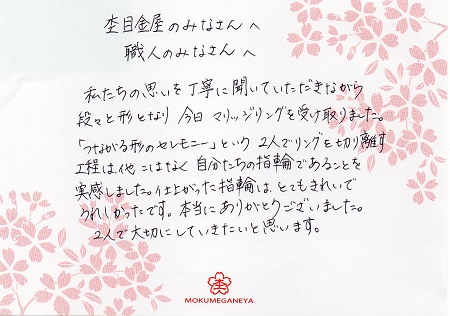 杢目金屋のみなさんへ
職人のみなさんへ
私たちの思いを丁寧に聞いていただきながら
段々と形となり 今日 マリッジリングを受け取りました。
「つながる形のセレモニー」という 2人でリングを切り離す
工程は、他にはなく 自分たちの指輪であることを
実感しました。仕上がった指輪は、とてもきれいで
うれしかったです。本当にありがとうございました。
2人で大切にしていきたいと思います。
MOKUMEGANEYA